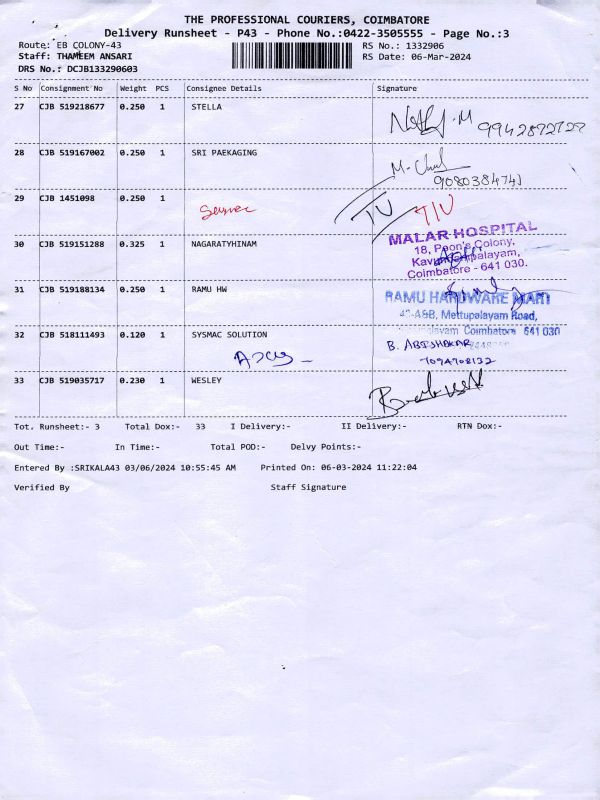 THE PROFESSIONAL COURIERS, COIMBATORE
Delivery Runsheet - P43 - Phone No.:0422-3505555 - Page No.:3
Route: EB COLONY-43 RS No.: 1332906
Staff: THAMEEM ANSARI RS Date: 06-Mar-2024
DRS No.: DCJB133290603
S No Consignment No Weight PCS Consignee Details Signature
27 CJB 519218677 0.250 1 STELLA
28 CJB 519167002 0.250 1 SRI PAEKAGING
9080384741
29 CJB 1451098 0.250 1
30 CJB 519151288 0.325 1 NAGARATYHINAM
MALAR HOSPITAL
18, Poon's Colony,
Coimbatore - 641 030.
31 CJB 519188134 0.250 1 RAMU HW
RAMU HARDWARE MART
Mettupalayam Road,
Coimbatore 641 030
32 CJB 518111493 0.120 1 SYSMAC SOLUTION
7094708132
33 CJB 519035717 0.230 1 WESLEY
Tot. Runsheet:- 3 Total Dox:- 33 I Delivery:- II Delivery:- RTN Dox:-
Out Time:- In Time:- Total POD:- Delvy Points:-
Entered By :SRIKALA43 03/06/2024 10:55:45 AM Printed On: 06-03-2024 11:22:04
Verified By Staff Signature